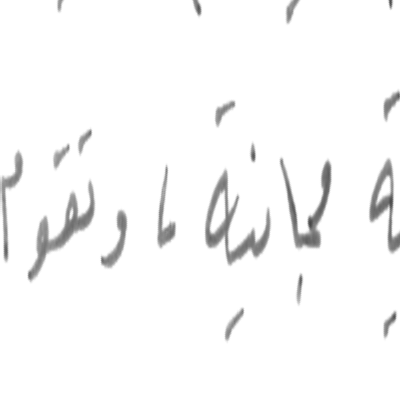 مجانية ما وتقوم